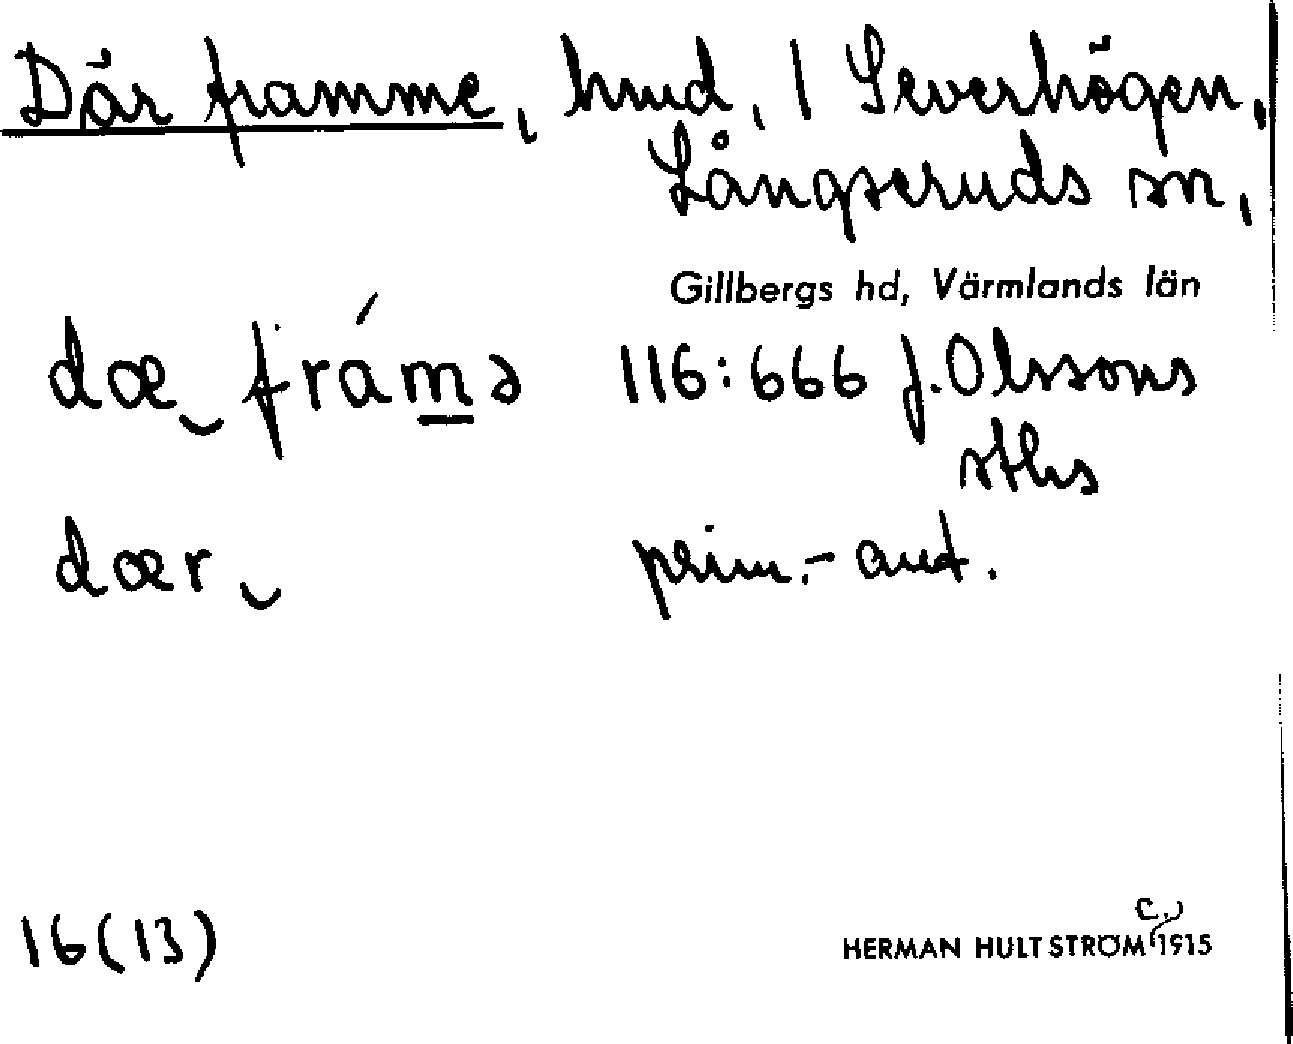 Där framme, hmd, 1 Severhögen,
Långseruds sn,
Gillbergs hd, Värmlands län
dæ‿ frámə 116:666 J. Olssons
sths
dær‿ prim.-ant.
16(13) HERMAN HULTSTRÖM c. 1915